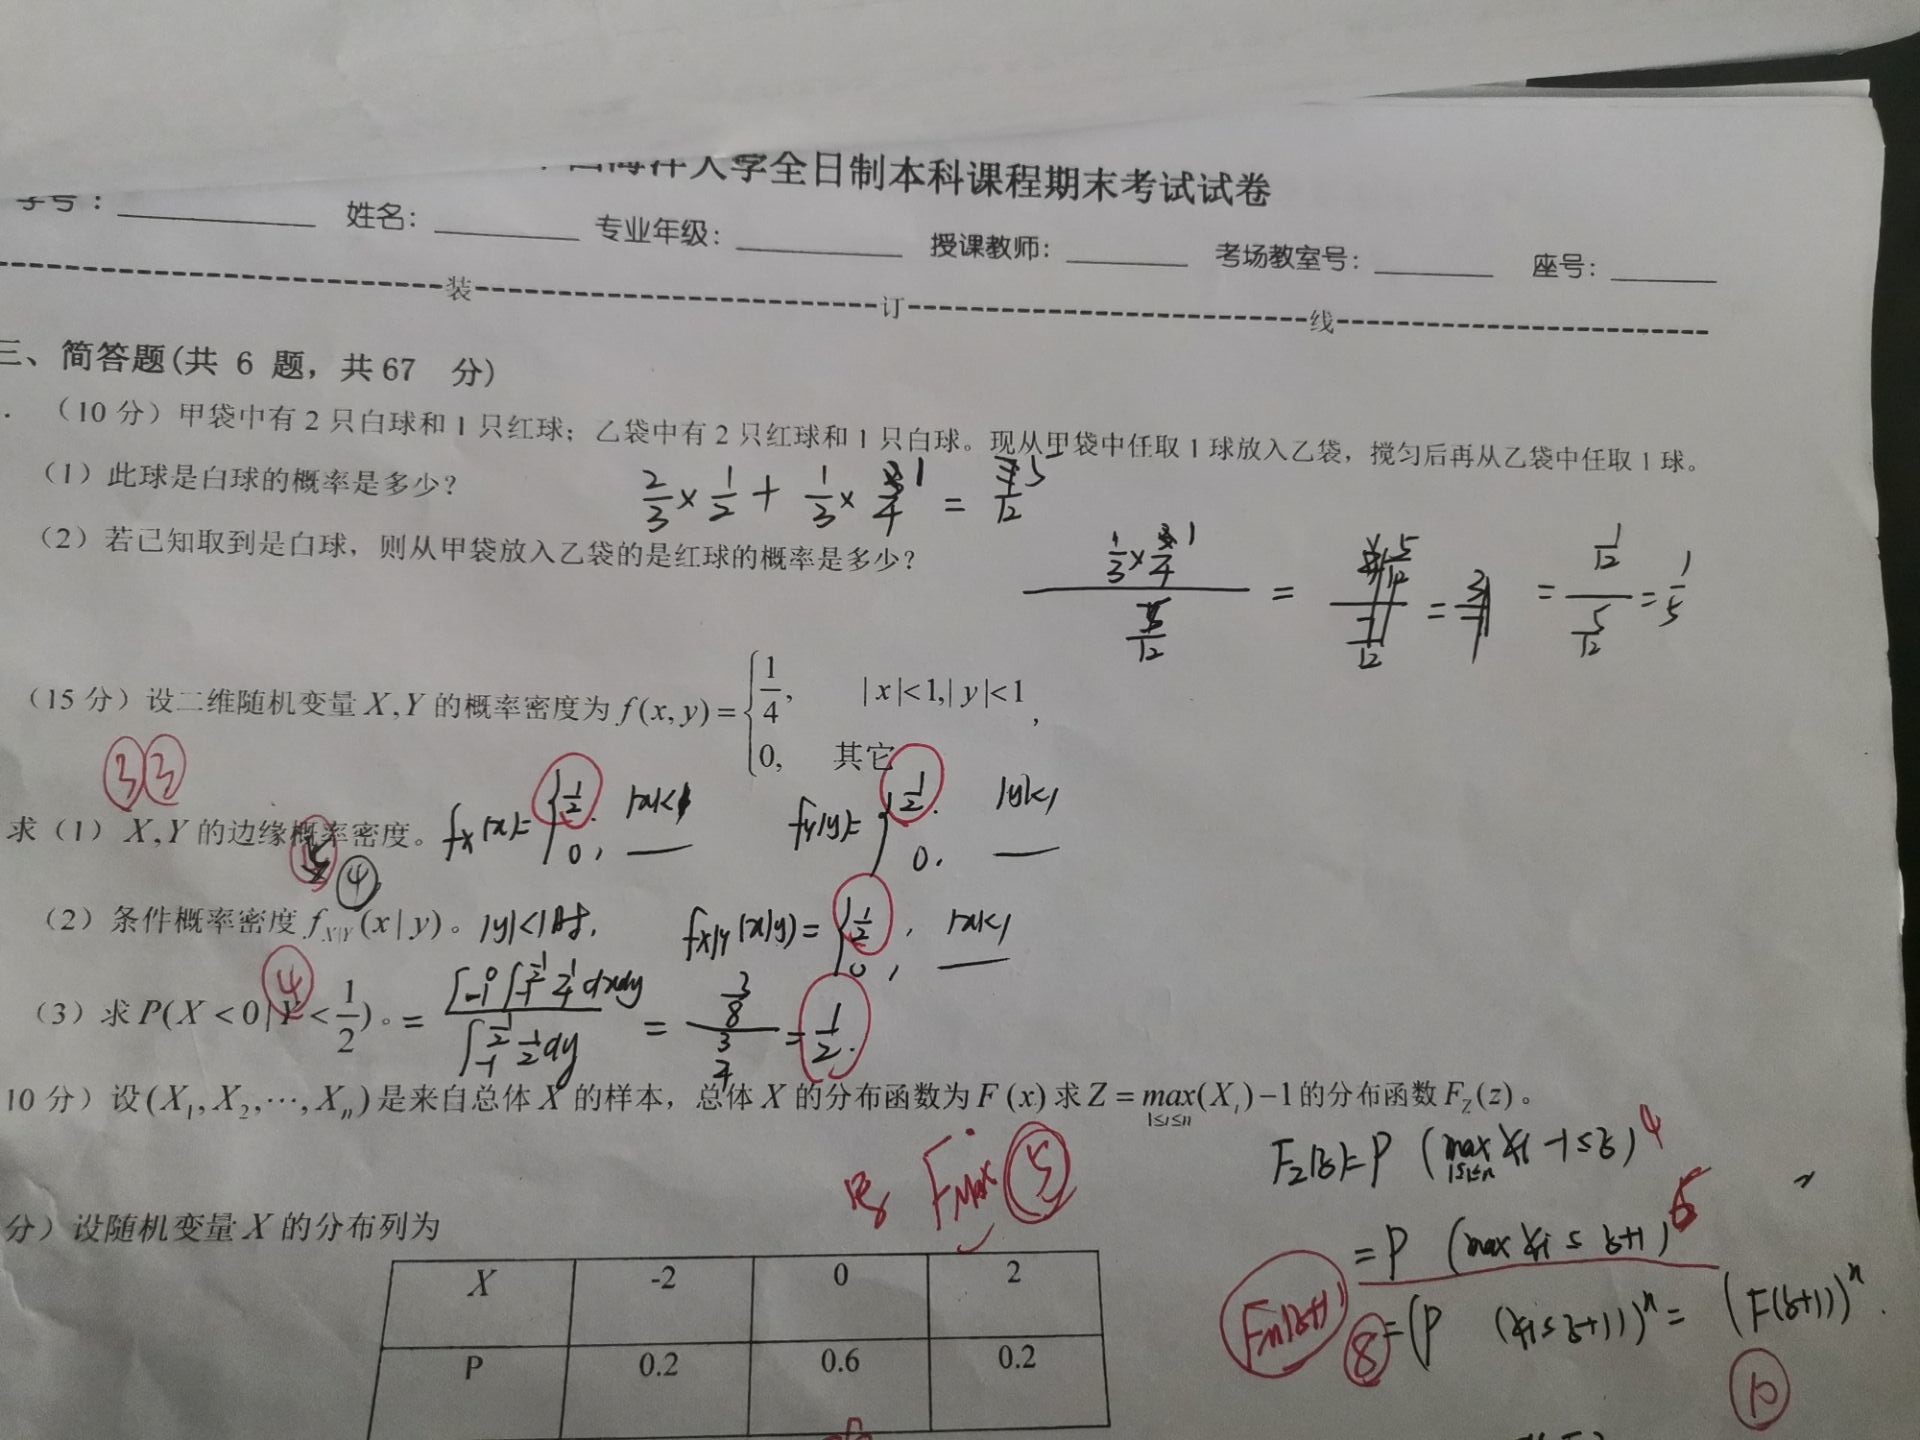 海洋大学全日制本科课程期末考试试卷
学号： 姓名： 专业年级： 授课教师： 考场教室号： 座号：
装 订 线
三、简答题(共 6 题，共 67 分)
. （10 分）甲袋中有 2 只白球和 1 只红球；乙袋中有 2 只红球和 1 只白球。现从甲袋中任取 1 球放入乙袋，搅匀后再从乙袋中任取 1 球。
（1）此球是白球的概率是多少？ 2/3 × 1/2 + 1/3 × 1/4 = 5/12
（2）若已知取到是白球，则从甲袋放入乙袋的是红球的概率是多少？ (1/3 × 1/4)/(5/12) = = (1/12)/(5/12) = 1/5
（15 分）设二维随机变量 X,Y 的概率密度为 f(x,y) = { 1/4, |x|<1,|y|<1
0, 其它 ,
③ ③
求（1）X,Y 的边缘概率密度。 fX(x)= { 1/2, |x|<1 fY(y)= { 1/2, |y|<1
0, — 0, —
④
（2）条件概率密度 f_{X|Y}(x|y)。 |y|<1时, fX|Y(x|y) = { 1/2, |x|<1
0, —
④
（3）求 P(X<0|Y<1/2)。 = ∫_{-1}^{0}∫_{-1}^{1/2} 1/4 dxdy / ∫_{-1}^{1/2} 1/2 dy = (3/8)/(3/4) = 1/2.
10 分）设 (X₁,X₂,⋯,Xₙ) 是来自总体 X 的样本，总体 X 的分布函数为 F (x) 求 Z = max(Xᵢ) −1 的分布函数 F_Z(z)。
1≤i≤n
FZ(z)=P (max Xi -1≤z) 4
1≤i≤n
Fmax ⑤
= P (max Xi ≤ z+1) 6
⑧ =(P (Xi≤z+1))ⁿ = (F(z+1))ⁿ.
⑩
分）设随机变量 X 的分布列为
X -2 0 2
P 0.2 0.6 0.2